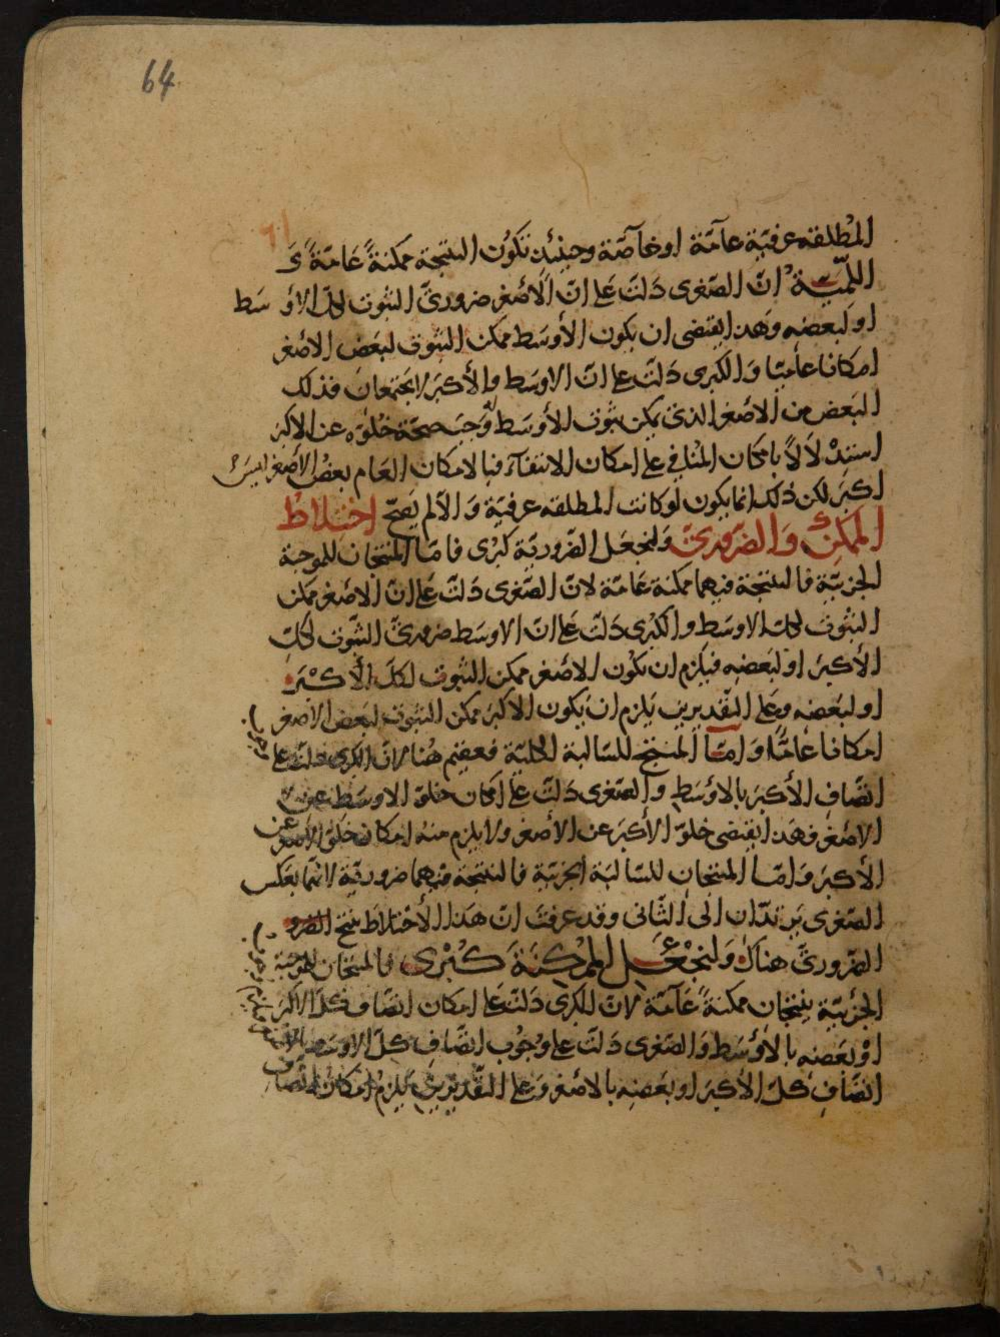 64
المطلقه عرفيّة عامّة او خاصّة وحينئذ تكون النتيجة ممكنةً عامّةً و
اللّمّيّة انّ الصّغرى دلّت على انّ الأصغر ضرورىّ الثبوت لكلّ الاوسط
او لبعضه وهذا يقتضى ان يكون الأوسط ممكن الثبوت لبعض الاصغر
امكانا عاميّا والكبرى دلّت على انّ الاوسط والأكبر لا يجتمعان فذلك
البعض من الاصغر الذى يمكن ثبوت الأوسط له وجب صحّة خلوّه عن الاكبر
استدلالاً بامكان المنافى على امكان الانتفآء فبالامكان العام بعض الاصغر ليس
اكبر لكن ذلك انما يكون لو كانت المطلقه عرفيّة والّا لم يصحّ اختلاط
الممكن والضرورىّ ولنجعل الضروريّة كبرى فامّا المنتجان للموجبة
الجزئيّة فالنتيجة فيهما ممكنة عامّة لانّ الصّغرى دلّت على انّ الاصغر ممكن
الثبوت لكلّ الاوسط والكبرى دلّت على انّ الاوسط ضرورىّ الثبوت لكلّ
الأكبر او لبعضه فيلزم ان يكون الاصغر ممكن الثبوت لكلّ الأكبر
او لبعضه وعلى التقديرين يلزم ان يكون الاكبر ممكن الثبوت لبعض الاصغر
امكانا عامّا وامّا المنتج للسالبة الكليّة فعقيم هنا لانّ الكبرى دلّت على
اتّصاف الأكبر بالاوسط والصّغرى دلّت على امكان خلوّ الاوسط عن
الاصغر فهذا يقتضى خلوّ الأكبر عن الاصغر ولا يلزم منه امكان خلوّ الاصغر عن
الأكبر وامّا المنتجان للسالبة الجزئيّة فالنتيجة فيهما ضروريّة لانّهما بعكس
الصّغرى يرتدّان الى الثّانى وقد عرفت انّ هذا الأختلاط ينتج الضرو
الضرورىّ هناك ولنجعل الممكنة كبرى فالمنتجان للموجبة
الجزئيّة ينتجان ممكنةً عامّة لانّ الكبرى دلّت على امكان اتصاف كلّ الاكبر
او بعضه بالأوسط والصّغرى دلّت على وجوب اتصاف كلّ الاوسط بالاصغر
اتصاف كلّ الأكبر او بعضه بالاصغر وعلى التّقديرين يلزم امكان اتّصاف